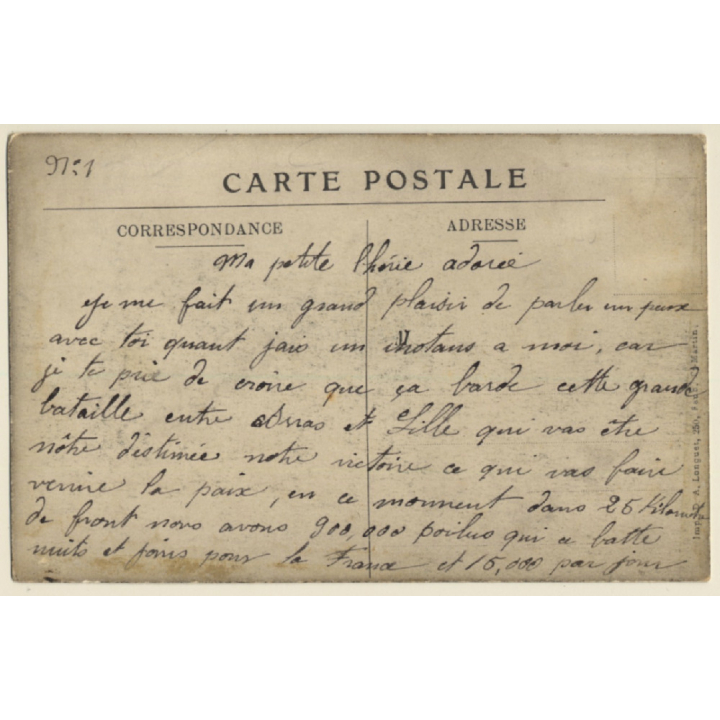 N:1
CARTE POSTALE
CORRESPONDANCE
ADRESSE
Ma petite Chérie adorée
je me fait un grand plaisir de parler un peux
avec toi quant jais un instans a moi, car
je te prie de croire que ça barde cette grande
bataille entre Arras et Lille qui vas être
nôtre déstinée notre victoire ce qui vas faire
venire la paix, en ce momment dans 25 Kilomt
de front nous avons 900,000 poilus qui ce batte
nuits et jours pour la France et 15,000 par jour
Imp. A. Longuet, 250, Faub. St Martin.